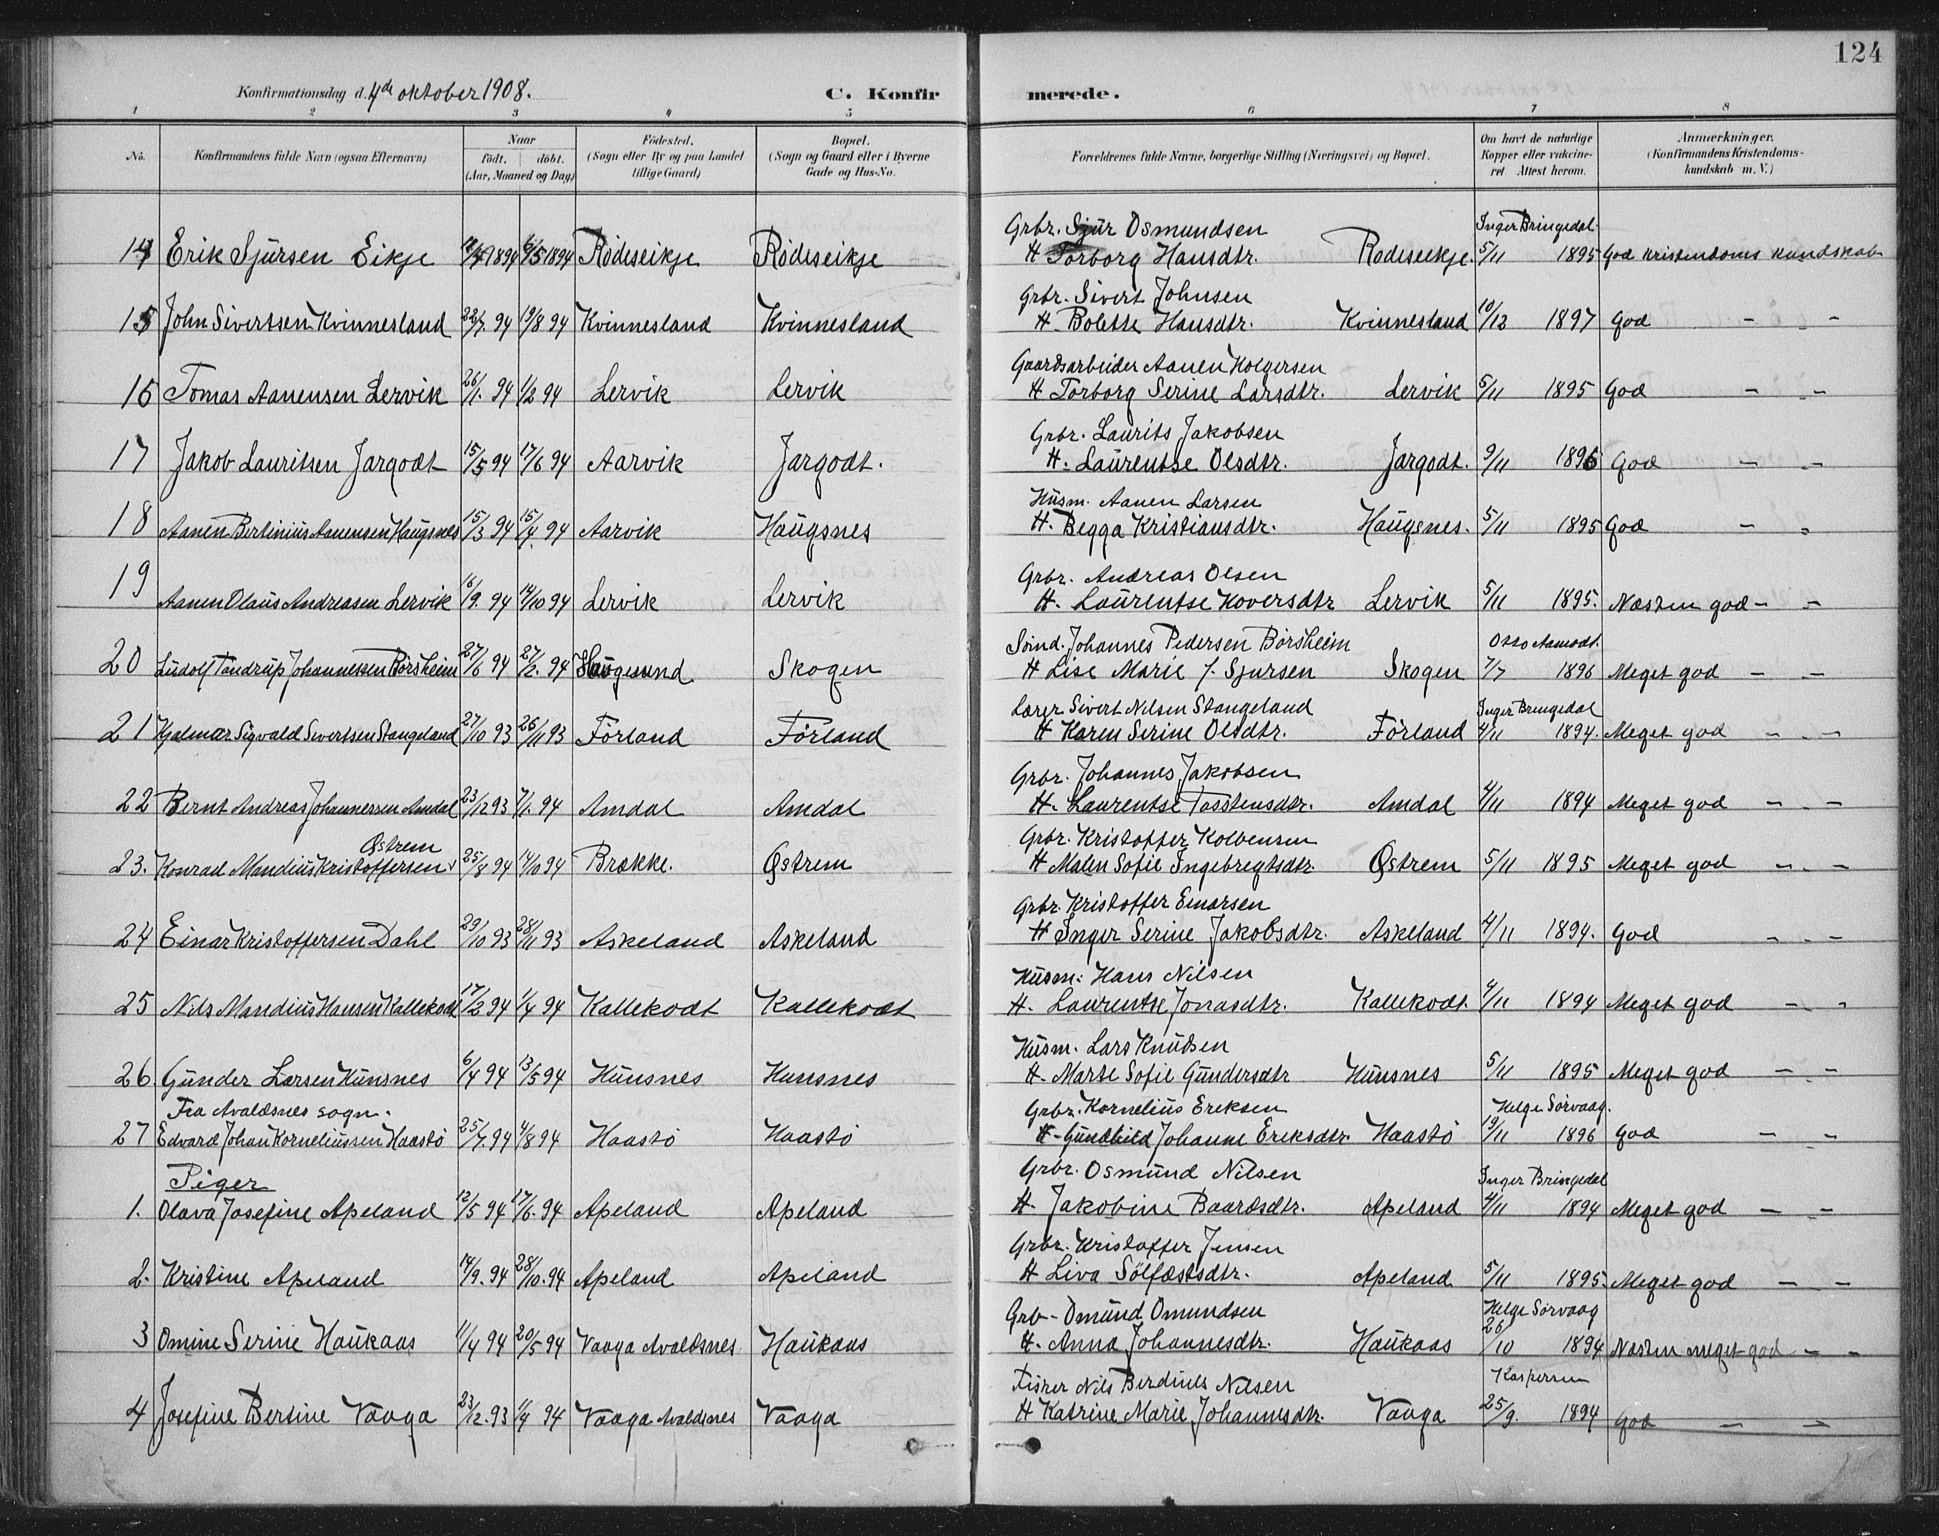 124
Konfirmationsdag d. 4de oktober 1908.
C. Konfirmerede.
1 2 3 4 5 6 7 8
No. | Konfirmandens fulde Navn (ogsaa Efternavn) | Naar født. døbt. (Aar, Maaned og Dag) | Fødested. (Sogn eller By og paa Landet tillige Gaard) | Bopæl. (Sogn og Gaard eller i Byerne Gade og Hus-No. | Forældrenes fulde Navne, borgerlige Stilling (Næringsvei) og Bopæl. | Om havt de naturlige Kopper eller vaccineret. Attest herom. | Anmærkninger. (Konfirmandens Kristendomskundskab m. V.)
Grbr. Sjur Osmundsen Inger Bringedal
14 Erik Sjursen Eikje 1894 6/5 1894 Rødeseikje Rødeseikje H Torborg Hansdtr. Rødeseikje. 5/11 1895 God kristendoms kundskab
Grbr. Sivert Johnsen
15 John Sivertsen Kvinnesland 22/7 94 19/8 94 Kvinnesland Kvinnesland H. Bolette Hansdtr. Kvinnesland 10/12 1897 God - -
Gaardsarbeider Aanen Holgersen
16 Tomas Aanensen Lervik 26/1. 94 1/2 94 Lervik Lervik H Torborg Serine Larsdtr. Lervik 5/11 1895 God - -
Grbr. Laurits Jakobsen
17 Jakob Lauritsen Jargodt 15/5 94 17/6 94 Aarvik Jargodt. H. Laurentse Olsdtr. Jargodt. 9/11 1896 God - -
Husm. Aanen Larsen
18 Aanen Bertinius Aanensen Haugsnes 15/3 94 15/4 94 Aarvik Haugsnes H. Begga Kristiansdtr. Haugsnes. 5/11 1895 God - -
Grbr. Andreas Olsen
19 Aanen Olaus Andreasen Lervik 16/9. 94 14/10 94 Lervik Lervik H. Laurentse Hoversdtr Lervik 5/11 1895. Næsten god - -
Sømd. Johannes Pedersen Børsheim Otto Aamodt.
20 Ludolf Tandrup Johannessen Børsheim 27/6 94 27/12. 94 Haugesund Skogen H Lise Marie f. Sjursen Skogen 7/7 1896 Meget god - -
Lærer Sivert Nilsen Stangeland Inger Bringedal
21 Hjalmar Sigvald Sivertsen Stangeland 27/10 93 26/11 93 Førland Førland H Karen Serine Olsdtr. Førland 4/11 1894. Meget god - -
Grbr. Johannes Jakobsen
22 Bernt Andreas Johannessen Amdal 23/12 93 7/1. 94 Amdal Amdal H. Laurentse Torstensdtr. Amdal 4/11 1894 Meget god - -
Østrem Grbr. Kristoffer Kolbensen
23. Konrad Mandius Kristoffersen 25/8 94 14/10 94 Brække. Østrem H Malen Sofie Ingebregtsdtr Østrem 5/11 1895 Meget god - -
Grbr. Kristoffer Einarsen
24 Einar Kristoffersen Dahl 29/10 93 28/11 93 Askeland Askeland H Inger Serine Jakobsdtr. Askeland 4/11 1894. God - -
Husm. Hans Nilsen
25 Nils Mandius Hansen Kallekodt 17/2 94 1/4 94 Kallekodt Kallekodt H. Laurentse Jonasdtr. Kallekodt. 4/11 1894 Meget god - -
Husm. Lars Knudsen
26 Gunder Larsen Hunsnes 6/4 94 13/5 94 Hunsnes Hunsnes H. Marte Sofie Gundersdtr Hunsnes 5/11 1895 Meget god - -
Fra Avaldsnes sogn. Grbr. Kornelius Eriksen Helge Sørvaag.
27 Edvard Johan Korneliussen Haastø 25/7. 94 4/8 94 Haastø Haastø H- Gundhild Johanne Eriksdtr. Haastø 19/11 1896 God - -
Piger Grbr. Osmund Nilsen Inger Bringedal
1. Olava Josefine Apeland 12/5 94 17/6. 94 Apeland Apeland H. Jakobine Baardsdtr. Apeland 4/11 1894 Meget god - -
Grbr. Kristoffer Jensen
2. Kristine Apeland 14/9. 94 28/10. 94 Apeland Apeland H Liva Sølfæstsdtr. Apeland 5/11 1895. Meget god - -
Grb- Omund Omundsen Helge Sørvaag
3 Omine Serine Haukaas 11/4 94 20/5 94 Vaaga Avaldsnes. Haukaas H. Anna Johannesdtr. Haukaas 26/10 1894 Næsten meget god - -
Fisker Nils Berdines Nilsen Kaspersen
4 Josefine Bertine Vaaga 23/12. 93 1/4 94 Vaaga Avaldsnes Vaaga H Katrine Marie Johannesdtr. Vaaga 25/9. 1894 God - -